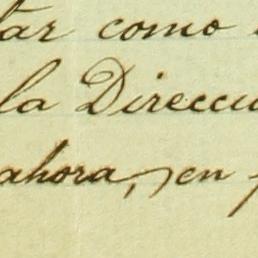 tar como
la Direcci
ahora, en